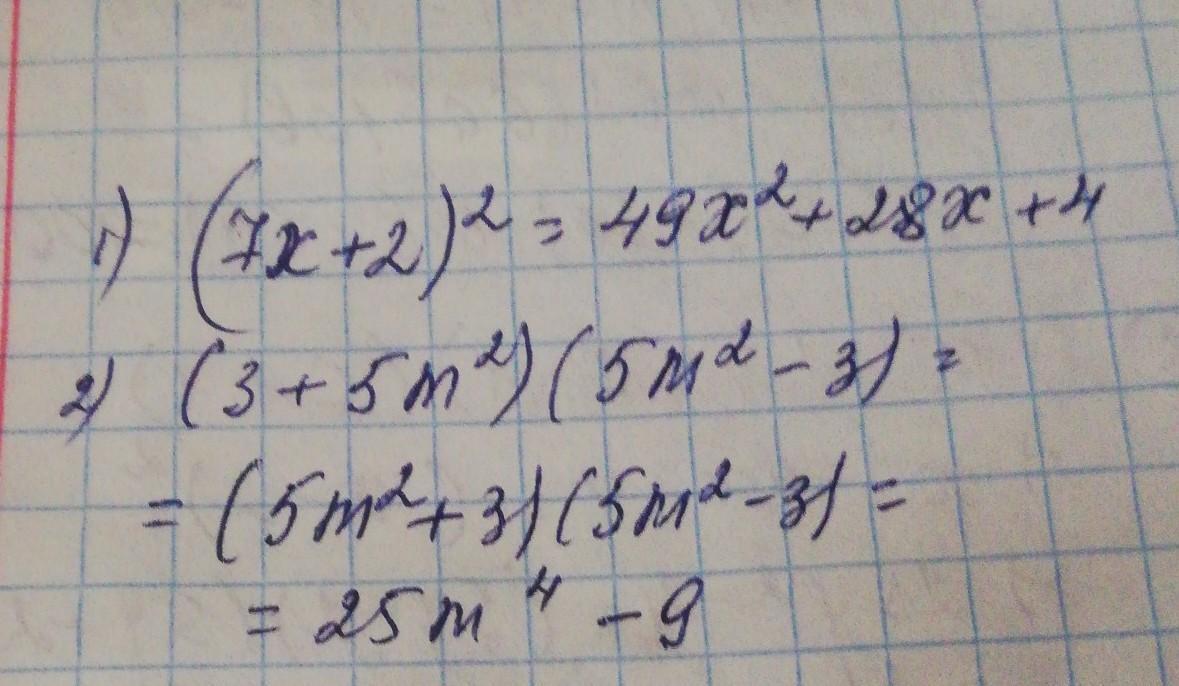 1) (7x+2)² = 49x² + 28x + 4
2) (3 + 5m²)(5m² - 3) =
= (5m² + 3)(5m² - 3) =
= 25m⁴ - 9